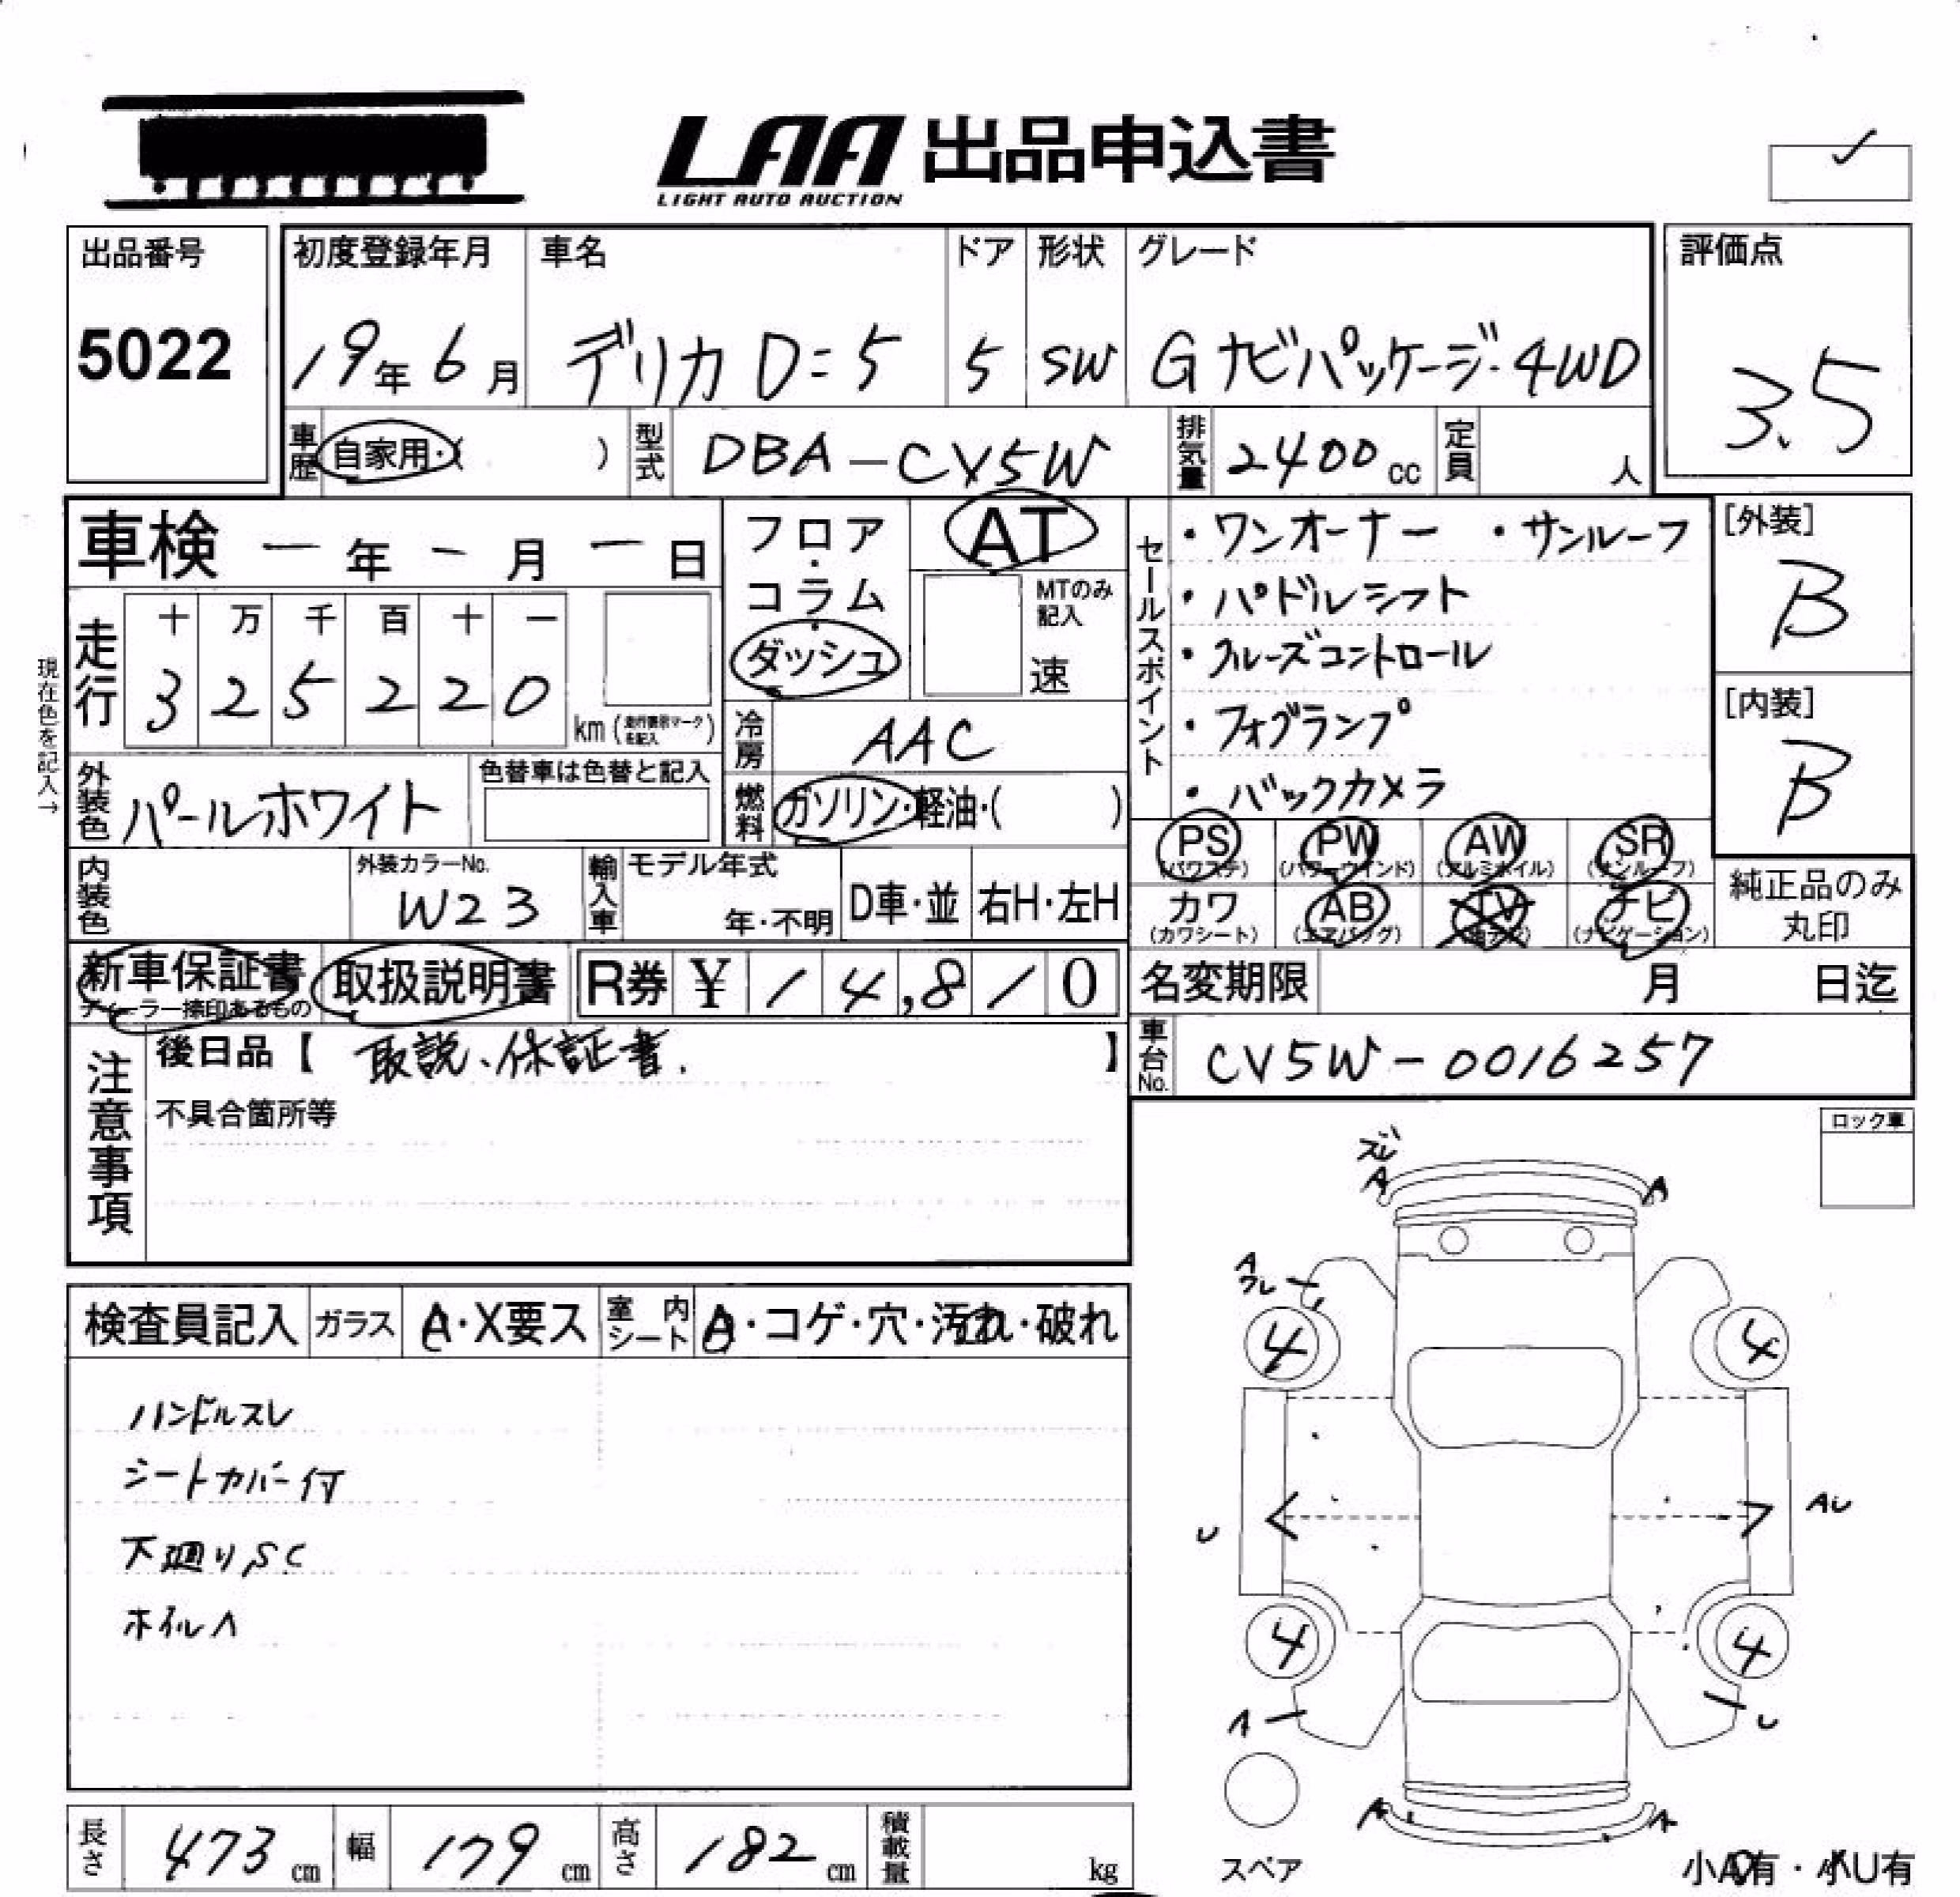 LAA 出品申込書
LIGHT AUTO AUCTION
出品番号
5022
初度登録年月
19年 6月
車名
デリカ D=5
ドア
5
形状
SW
グレード
G ナビパッケージ・4WD
評価点
3.5
車歴 自家用・( )
型式 DBA-CV5W
排気量 2400 cc
定員 人
車検 ー 年 ー 月 ー 日
フロア・コラム・ダッシュ
AT
MTのみ記入
速
セールスポイント
・ワンオーナー ・サンルーフ
・パドルシフト
・クルーズコントロール
・フォグランプ
・バックカメラ
[外装]
B
[内装]
B
現在色を記入→
走行
十 万 千 百 十 一
3 2 5 2 2 0 km (走行表示マークを記入)
冷房 AAC
外装色 パールホワイト
色替車は色替と記入
燃料 ガソリン・軽油・( )
PS (パワステ) PW (パワーウインド) AW (アルミホイル) SR (サンルーフ)
カワ (カワシート) AB (エアバッグ) TV ナビ (ナビゲーション)
純正品のみ丸印
内装色
外装カラーNo.
W23
輸入車
モデル年式
年・不明
D車・並
右H・左H
新車保証書
ディーラー捺印あるもの
取扱説明書
R券 ¥ 14,810
名変期限 月 日迄
注意事項
後日品【 取説、保証書. 】
不具合箇所等
車台No. CV5W-0016257
ロック車
検査員記入
ガラス A・X要ス
室内シート A・コゲ・穴・汚れ・破れ
ハンドルスレ
シートカバー付
下廻りSC
ホイルA
スレ
A A
A
ワレ
4 4
U AU
4 4
A U
A A
スペア
小A有・小U有
長さ 473 cm
幅 179 cm
高さ 182 cm
積載量 kg